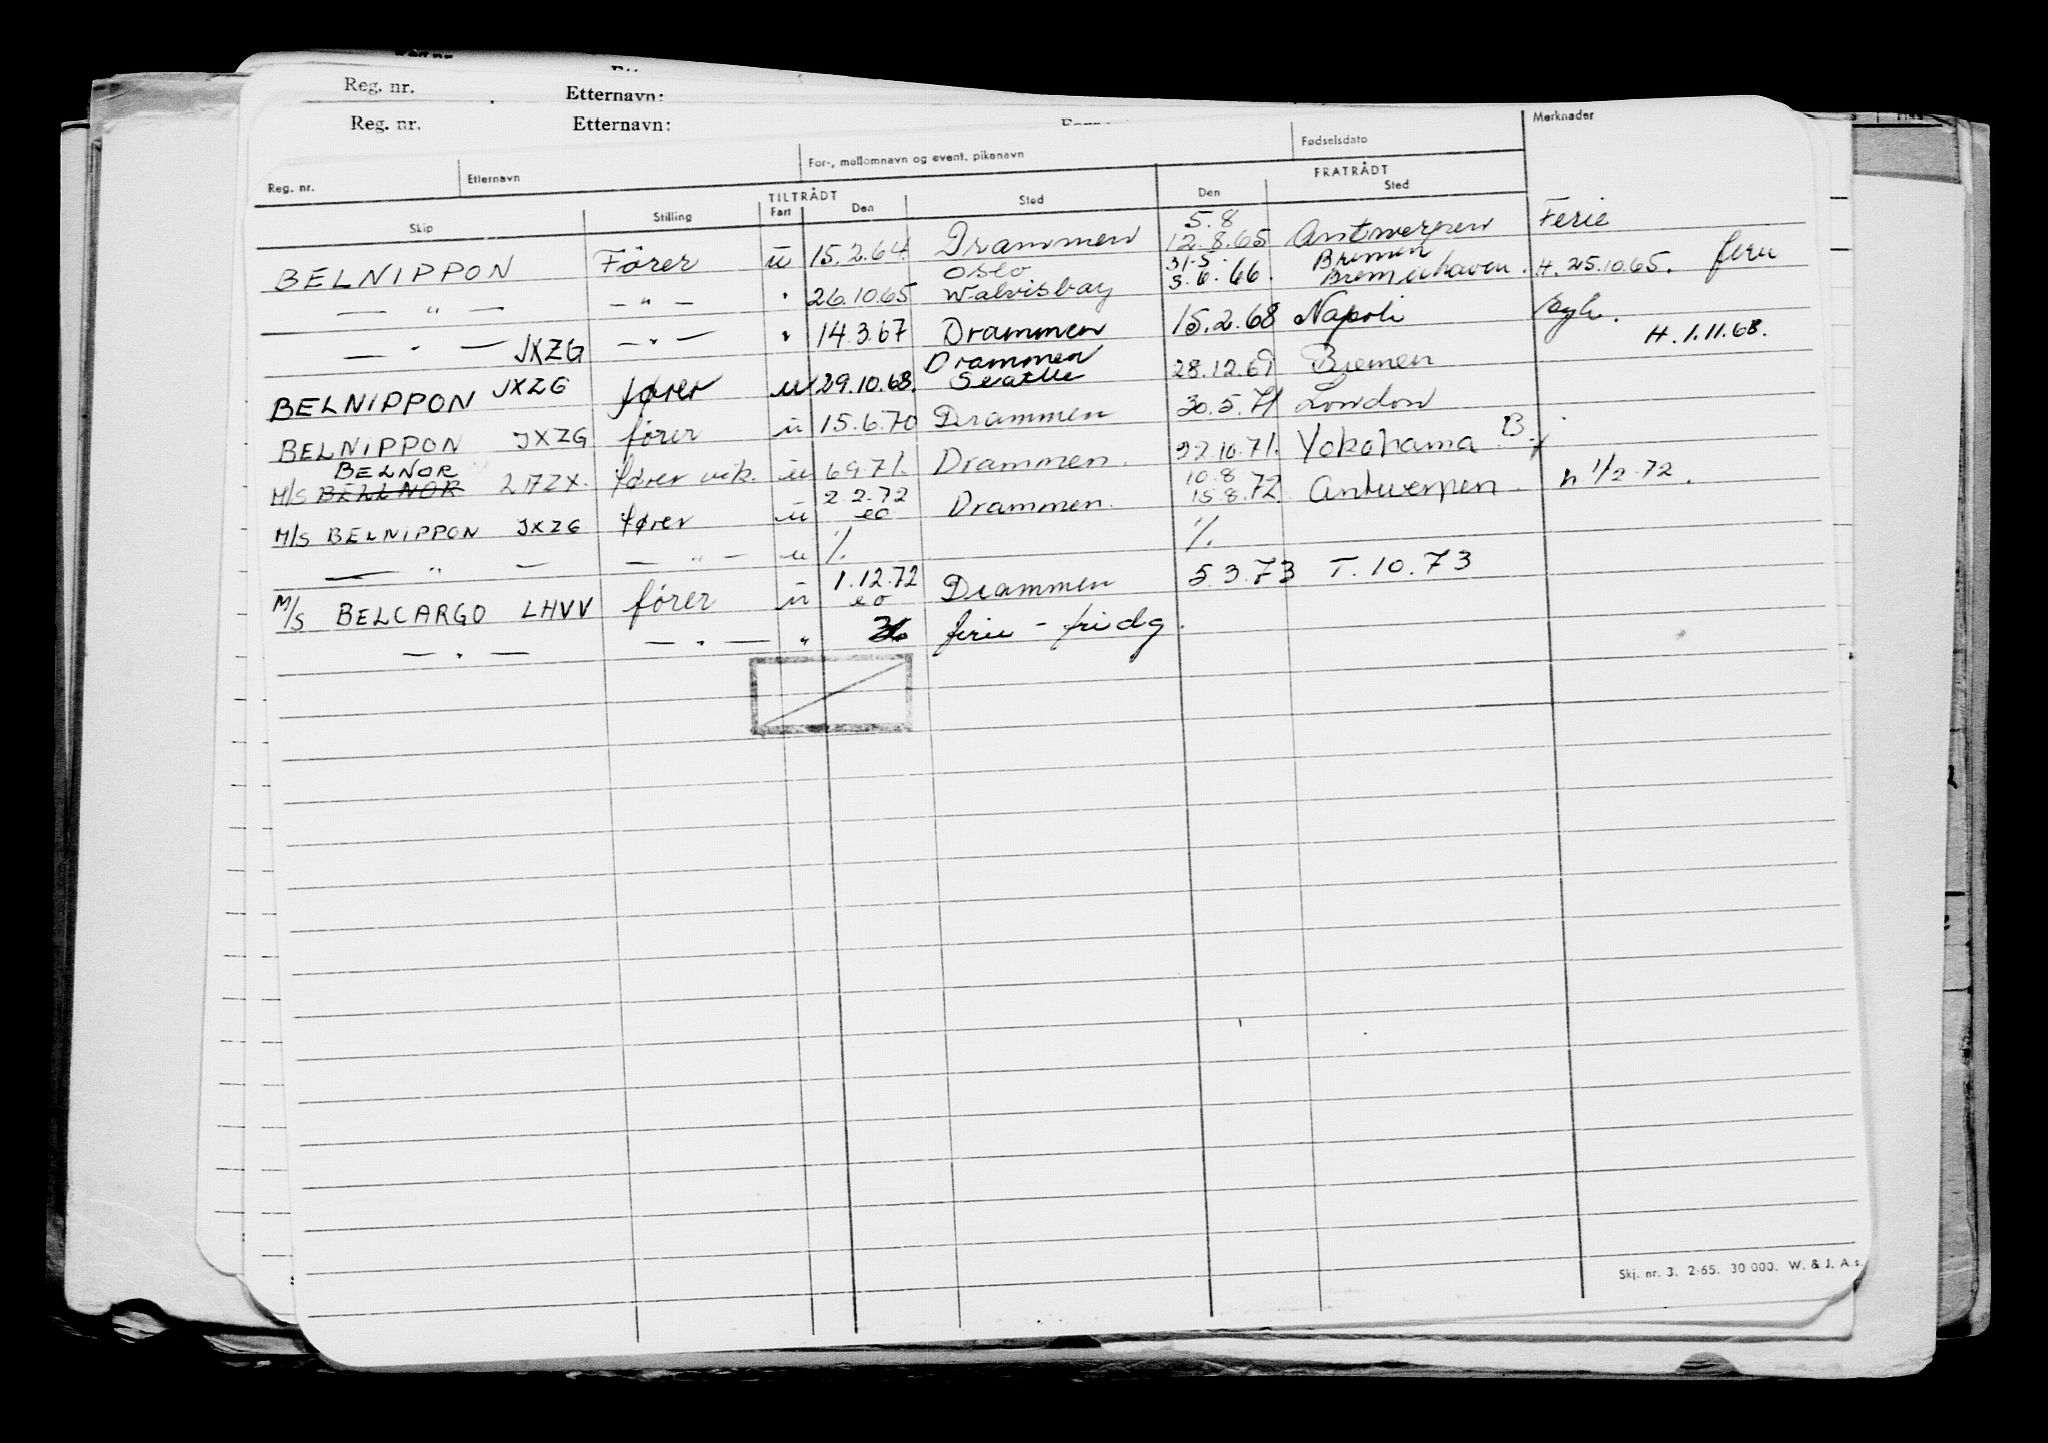 Reg. nr. Etternavn:
Reg. nr. Etternavn:
Reg. nr. Etternavn For-, mellomnavn og event. pikenavn Fødselsdato Merknader
TILTRÅDT FRATRÅDT
Skip Stilling Fart Den Sted Den Sted
5.8
BELNIPPON Fører u 15.2.64. Drammen 12.8.65 Antwerpen Ferie
Oslo 31.5. Bremen
— " — — " — " 26.10.65 Walvisbay 3.6.66. Bremerhaven. H. 25.10.65. ferie
— " — JXZG — " — " 14.3.67 Drammen 15.2.68 Napoli
H. 1.11.68.
Drammen
BELNIPPON JXZG fører u 29.10.68. Seattle 28.12.69 Bremen
BELNIPPON JXZG fører u 15.6.70 Drammen 30.5.71 London
BELNOR
M/S BELLNOR fører vik. u 6.9.71. Drammen. 22.10.71. Yokohama B
2.2.72 10.8
M/S BELNIPPON JXZG fører u eo Drammen. 15.8.72 Antwerpen. h 1/2.72.
— " — — " — u %. %.
1.12.72
M/S BELCARGO LHVV fører u eo Drammen 5.3.73 T.10.73
— " — — " — " ferie - fridg.
Skj. nr. 3. 2-65. 30 000. W. & J. A.s.